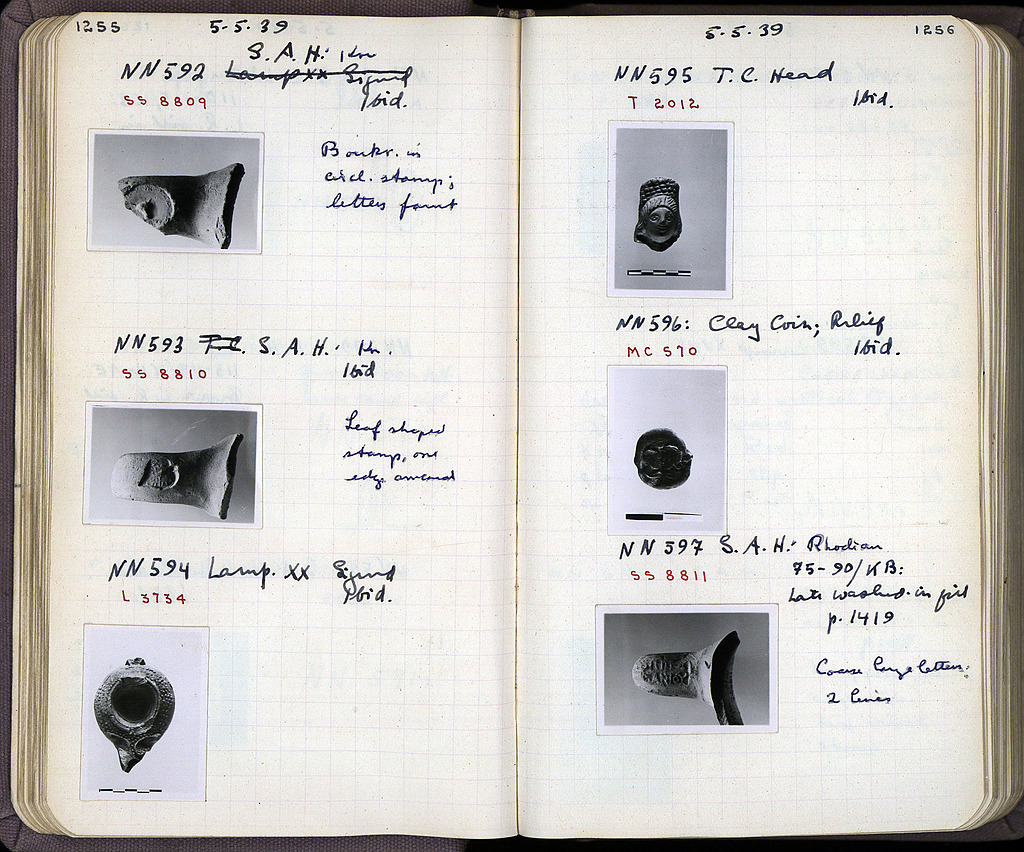 1255
5-5-39
S.A.H: Kn
NN592 Lamp XX Signed
SS 8809
Ibid.
Boukr. in
circl. stamp;
letters faint
NN593 T.C. S.A.H.: Kn.
SS 8810
Ibid
Leaf shaped
stamp, one
edge
NN594 Lamp. XX Signed
L 3734
Ibid.
5-5.39
1256
NN595 T.C. Head
T 2012
Ibid.
NN596: Clay Coin; Relief
MC 570
Ibid.
NN597 S.A.H.: Rhodian
SS 8811
75-90/KB:
Late washed in fill
p. 1419
Coarse large letters:
2 lines